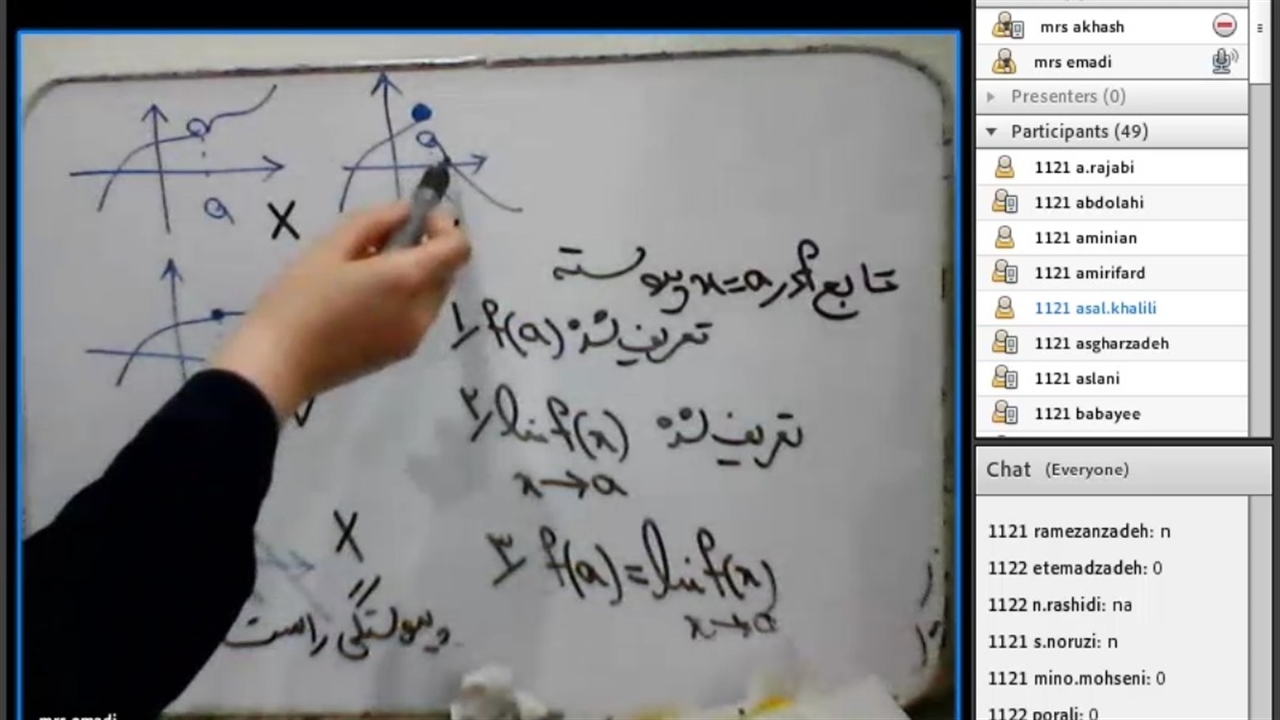 a
X
تابع f در x=a پیوسته
۱) f(a) تعریف شده
۲) lim f(x) تعریف شده
x→a
X
۳) f(a) = lim f(x)
x→a
پیوستگی راست
mrs emadi
mrs akhash
mrs emadi
Presenters (0)
Participants (49)
1121 a.rajabi
1121 abdolahi
1121 aminian
1121 amirifard
1121 asal.khalili
1121 asgharzadeh
1121 aslani
1121 babayee
Chat (Everyone)
1121 ramezanzadeh: n
1122 etemadzadeh: 0
1122 n.rashidi: na
1121 s.noruzi: n
1121 mino.mohseni: 0
1122 porali: 0